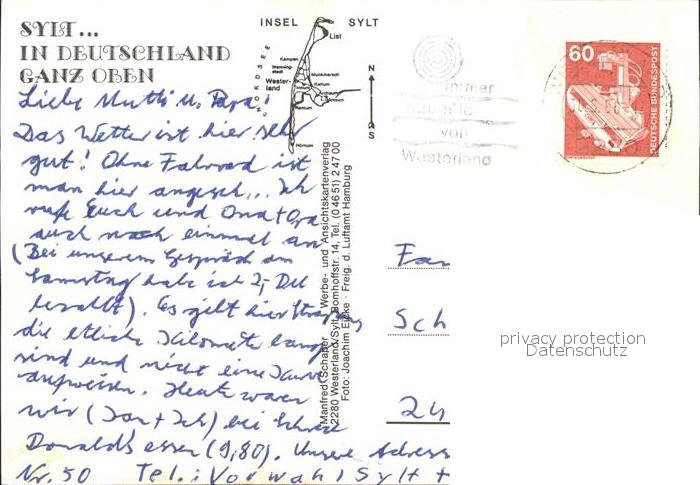 SYLT...
IN DEUTSCHLAND
GANZ OBEN
INSEL SYLT
List
Kampen
Wenning-
stedt
Munkmarsch
Wester-
land
Keitum
Archsum
Morsum
Rantum
Hörnum
NORDSEE
N
S
immer
von
Westerland
60
DEUTSCHE BUNDESPOST
Liebe Mutti u. Papa!
Das Wetter ist hier sehr
gut! Ohne Fahrrad ist
man hier angesch... Ich
rufe Euch und Oma + Opa
auch noch einmal an
(Bei unserem Gespräch am
Samstag habe ich 2,- DM
bezahlt). Es gibt hier Straßen
die etliche Kilometer lang
sind und nicht eine Kurve
aufweisen. Heute waren
wir (Jan + Ich) bei
Donalds essen (9,80). Unsere Adress
Nr. 50 Tel.: Vorwahl Sylt +
Manfred Schalter Werbe- und Ansichtskartenverlag
2280 Westerland/Sylt, Bomhoffstr. 14, Tel. (04651) 24700
Foto: Joachim Ezke · Freig. d. Luftamt Hamburg
Fam
Sch
24
privacy protection
Datenschutz